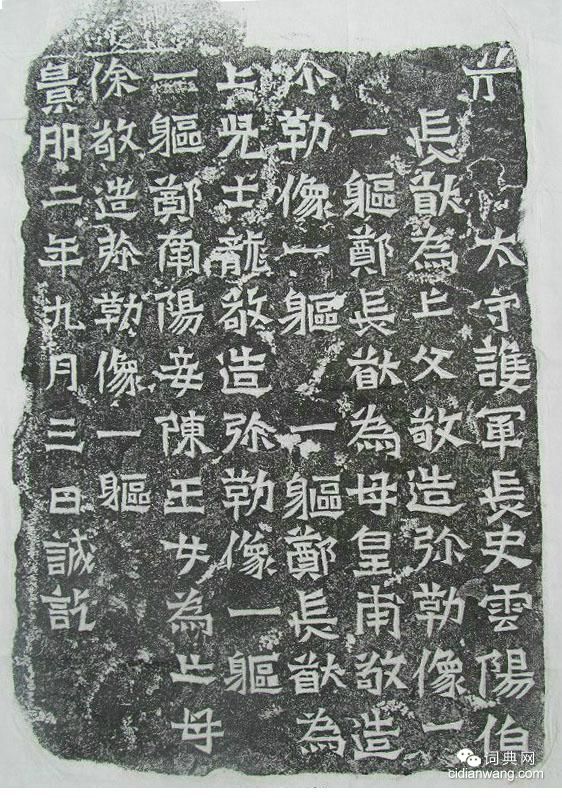 太守護軍長史雲陽伯
長猷為亡父敬造弥勒像一
一軀鄭長猷為母皇甫敬造
弥勒像一軀一軀鄭長猷為
亡兒士龍敬造弥勒像一軀
一軀鄭南陽妾陳玉女為亡母
徐敬造弥勒像一軀
景明二年九月三日誠訖
词典网
cidianwang.com